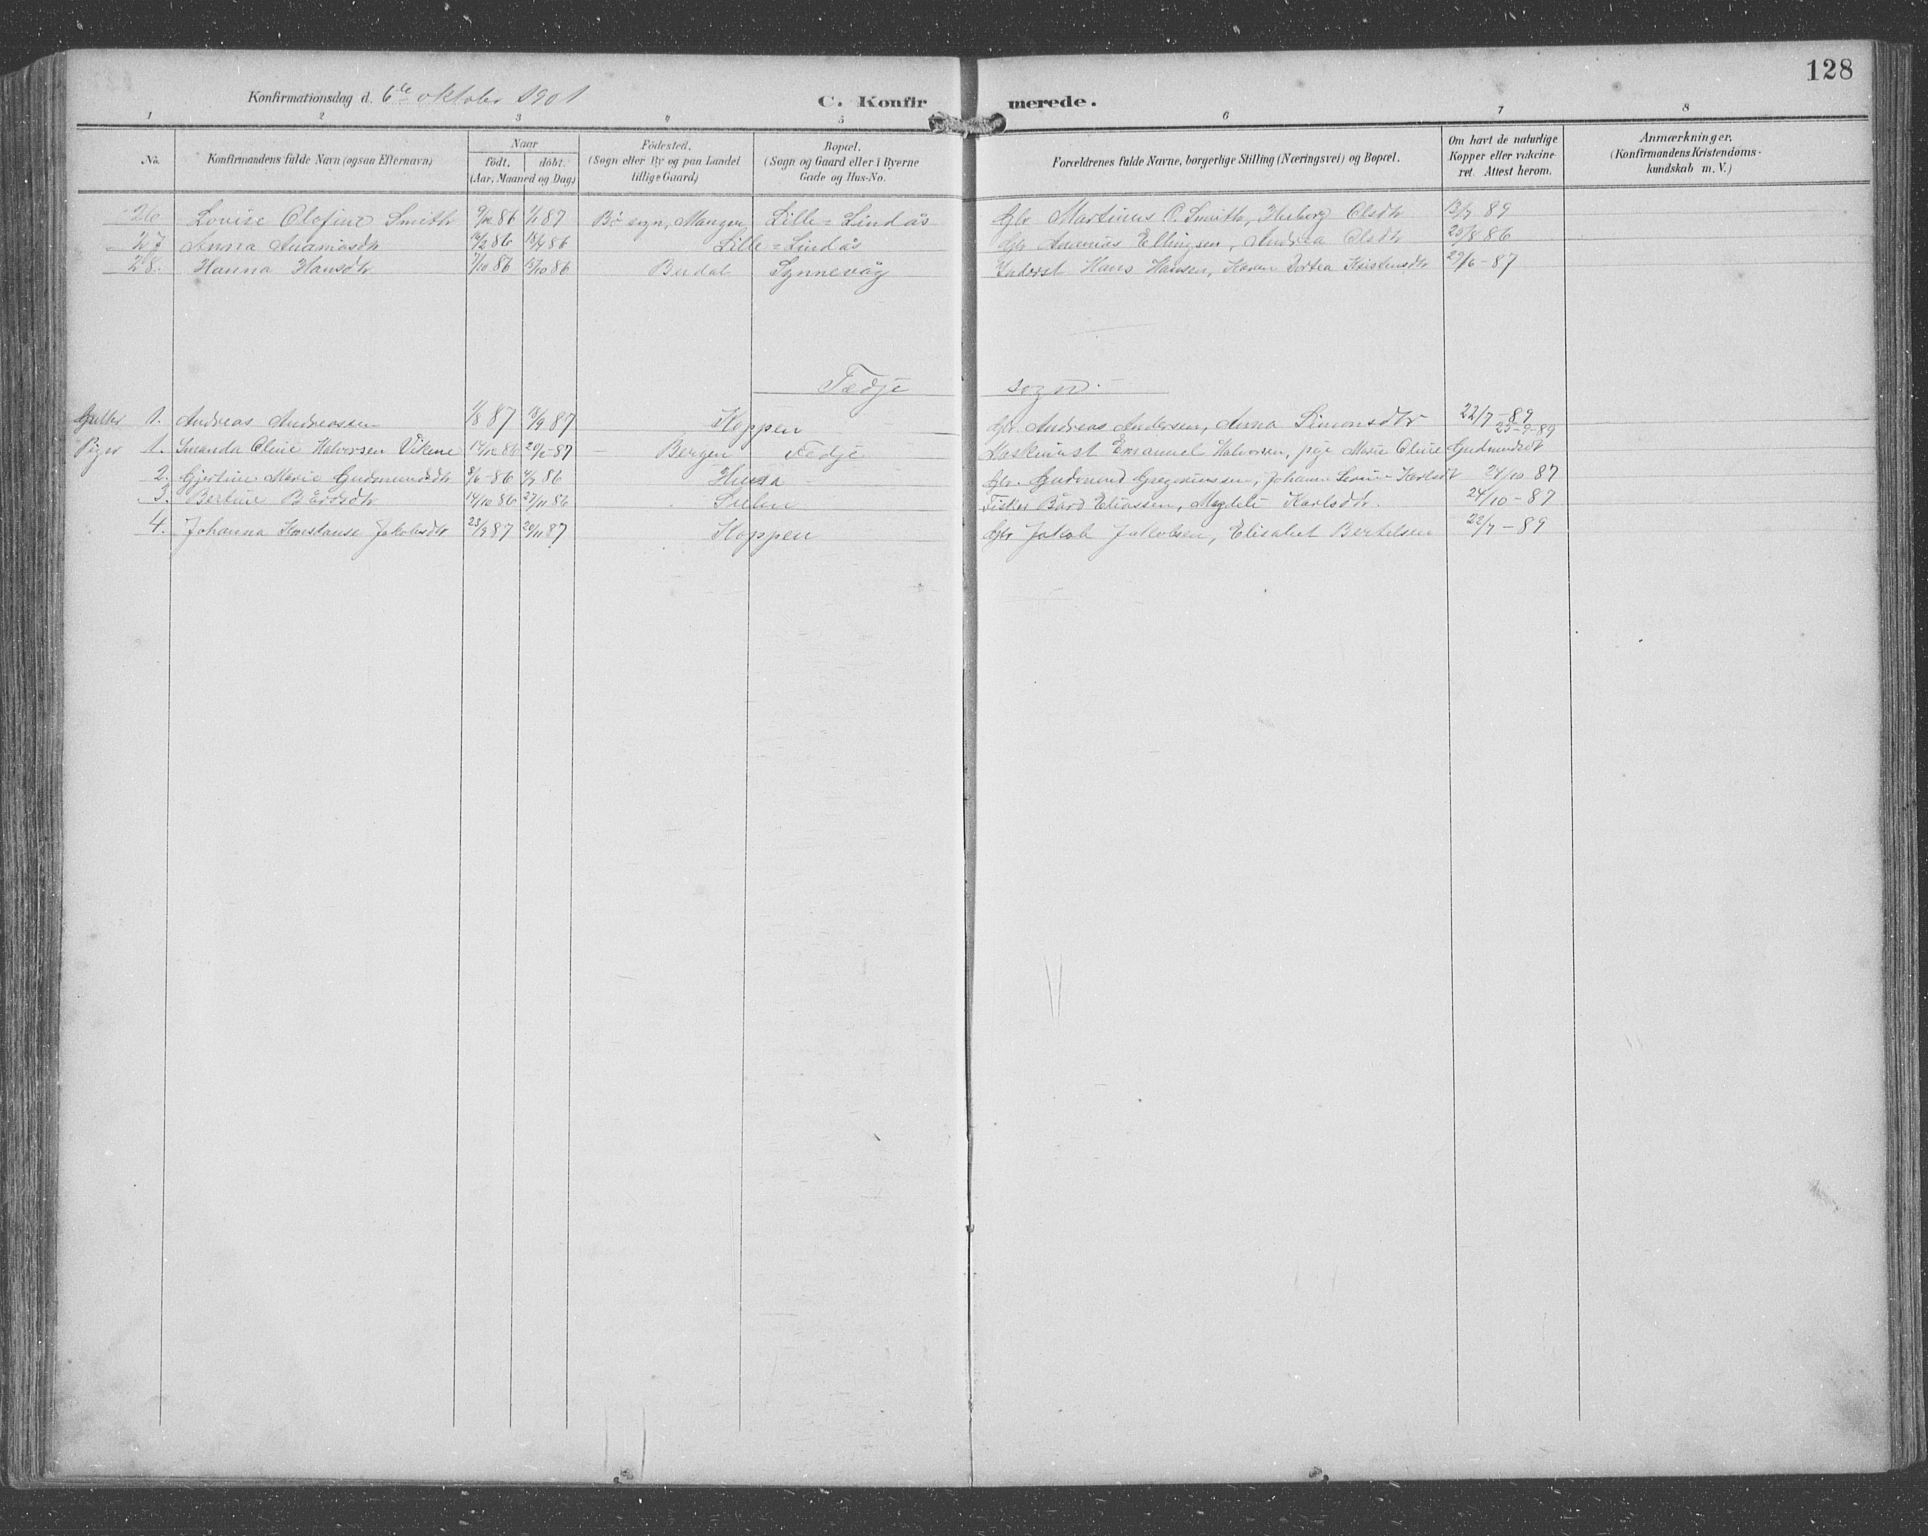 128
Konfirmationsdag d. 6te oktober 1901
C. Konfirmerede.
1 2 3 4 5 6 7 8
No. Konfirmandens fulde Navn (ogsaa Efternavn) Naar født. døbt. (Aar, Maaned og Dag) Fødested. (Sogn eller By og paa Landet tillige Gaard) Bopæl. (Sogn og Gaard eller i Byerne Gade og Hus-No. Forældrenes fulde Navne, borgerlige Stilling (Næringsvei) og Bopæl. Om havt de naturlige Kopper eller vakcineret. Attest herom. Anmærkninger. (Konfirmandens Kristendomskundskab m. V.)
26 Lovise Olofine Smith 9/12 86 1/1 87 Bø sogn, Manger Lille-Lindås Gbr Martinus O. Smith, Olsdtr 13/7 89
27 Anna Ananiasdtr 86 86 Lille-Lindås Gbr Ananias Ellingsen, Andrea Olsdtr 20/8 86
28. Hanna Hansdtr 7/10 86 13/10 86 Berdal Synnevåg Inderst Hans Hansen, Karen Dortea Kristensdtr 29/6-87
Fedje sogn.
Gutter 1. Andreas Andreassen 1/8 87 18/9 87 Koppen Gbr. Andreas Andersen, Anna Simonsdtr 22/7-89
Piger 1. Smanda Oline Halvorsen Vikene 14/12 86 20/2-87 – Bergen Fedje Maskinist Emanuel Halvorsen, pige Marie Oline Gudmundsdt 25-9-89
2. Gjertine Marie Gudmundsdtr 8/6-86 4/7 86 Husa Gbr. Gudmund Gregoriussen, Johanne Karlsdt 24/10 87
3. Bertine Bårdsdtr 14/10 86 27/11 86 Fisker Bård Eliassen, Magdeli Karlsdtr. 24/10-87
4. Johanna Konstanse Jakobsdtr 23/9 87 20/11 87 Koppen Gbr Jakob Jakobsen, Elisabet Bertelsen 22/7-89